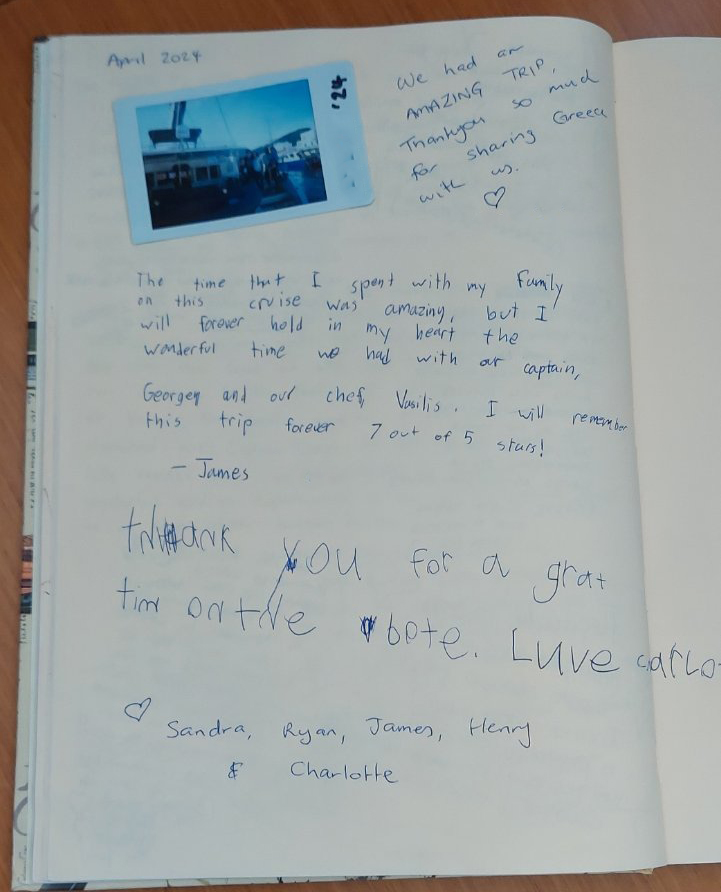 April 2024
'24
We had an
AMAZING TRIP.
Thankyou so much
for sharing Greece
with us.
♡
The time that I spent with my Family
on this cruise was amazing, but I
will forever hold in my heart the
wonderful time we had with our captain,
Georgey and our chef, Vasilis. I will remember
this trip forever 7 out of 5 stars!
- James
thank you for a grat
tim on the bote. Luve carlo
♡ Sandra, Ryan, James, Henry
& Charlotte